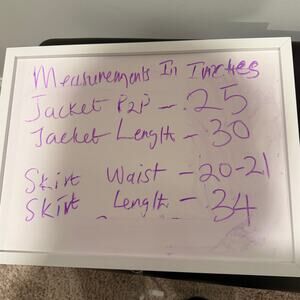 Measurements In Inches
Jacket P2P - 25
Jacket Length - 30
Skirt Waist - 20-21
Skirt Length - 34